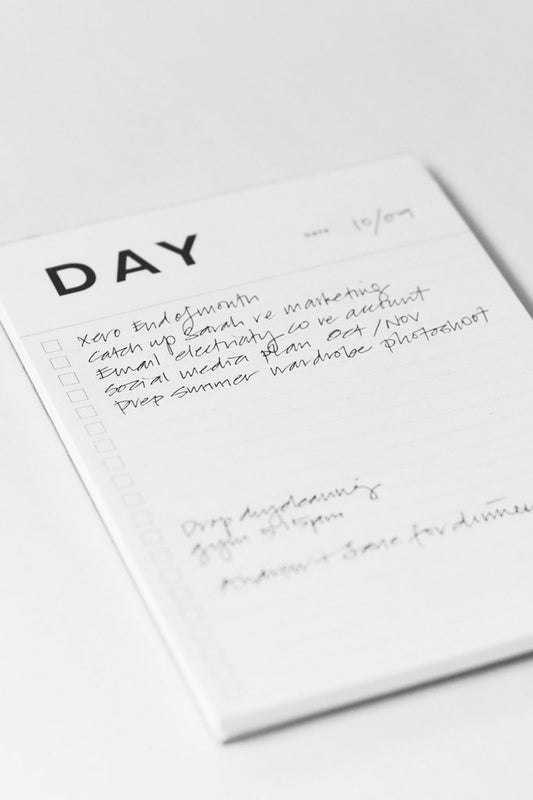 DAY
DATE 10/09
Xero End of month
catch up Sarah re marketing
Email electricity co re account
Social media plan Oct/Nov
Prep summer wardrobe photoshoot
Drop drycleaning
gym 5:15pm
Andrew + Jane for dinner